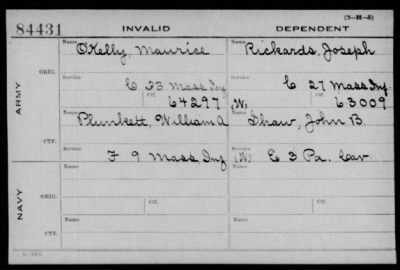 (3-H-3)
84431 INVALID DEPENDENT
Name Name
O'Kelly, Maurice Rickards, Joseph
ORIG. Service Service
C 23 Mass Inf C 27 Mass Inf
Ctf. Ctf.
64297 (W) 63009
ARMY
Name Name
Plunkett, William A Shaw, John B.
CTF. Service Service
F 9 Mass, Inf (W) E 3 Pa. Cav
Name Name
NAVY
ORIG. Ctf. Ctf.
Name Name
CTF.